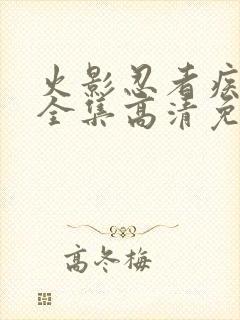 火影忍者疾
全集高清免
高冬梅